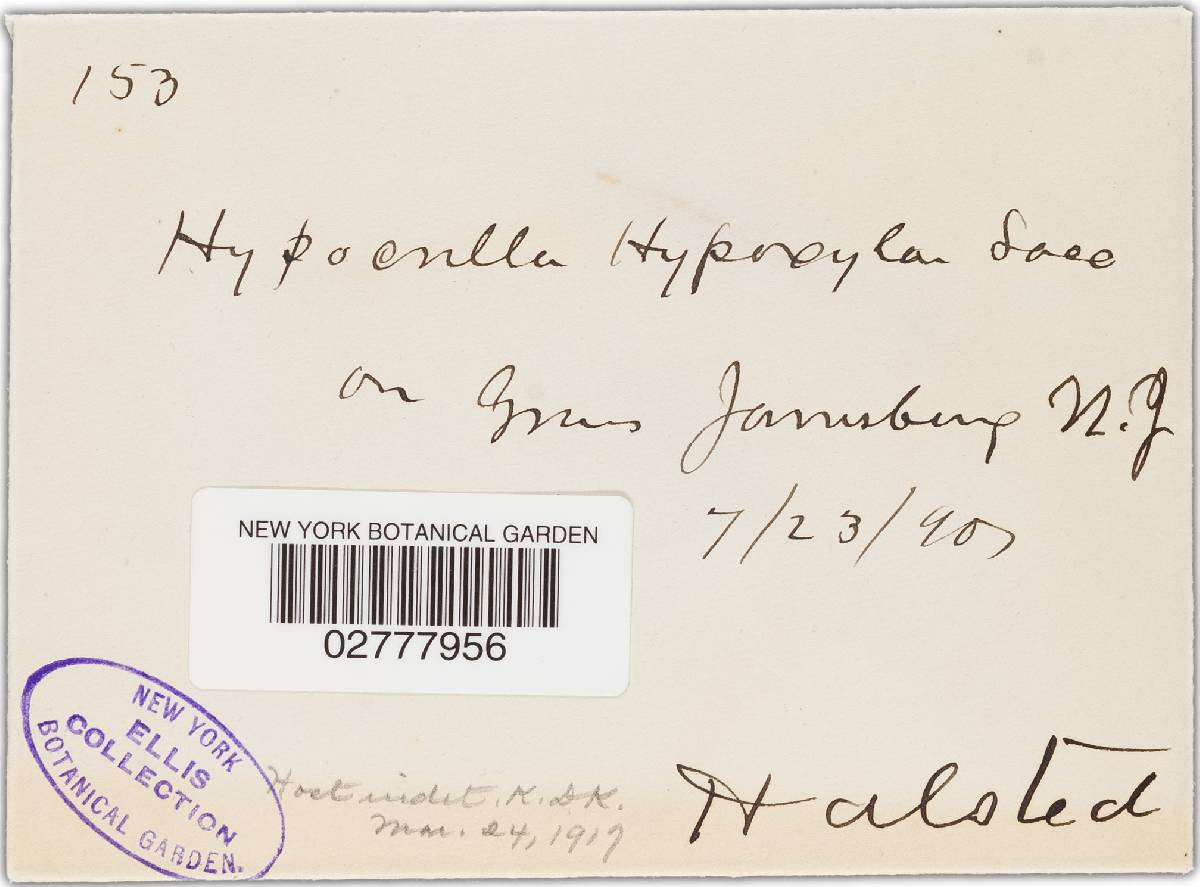 153
Hypocrella Hypoxylon Sacc
on Grass Jamesburg N.J
7/23/90
NEW YORK BOTANICAL GARDEN
02777956
NEW YORK
ELLIS
COLLECTION
BOTANICAL GARDEN.
Host indet. K.D.K.
Mar. 24, 1917
Halsted